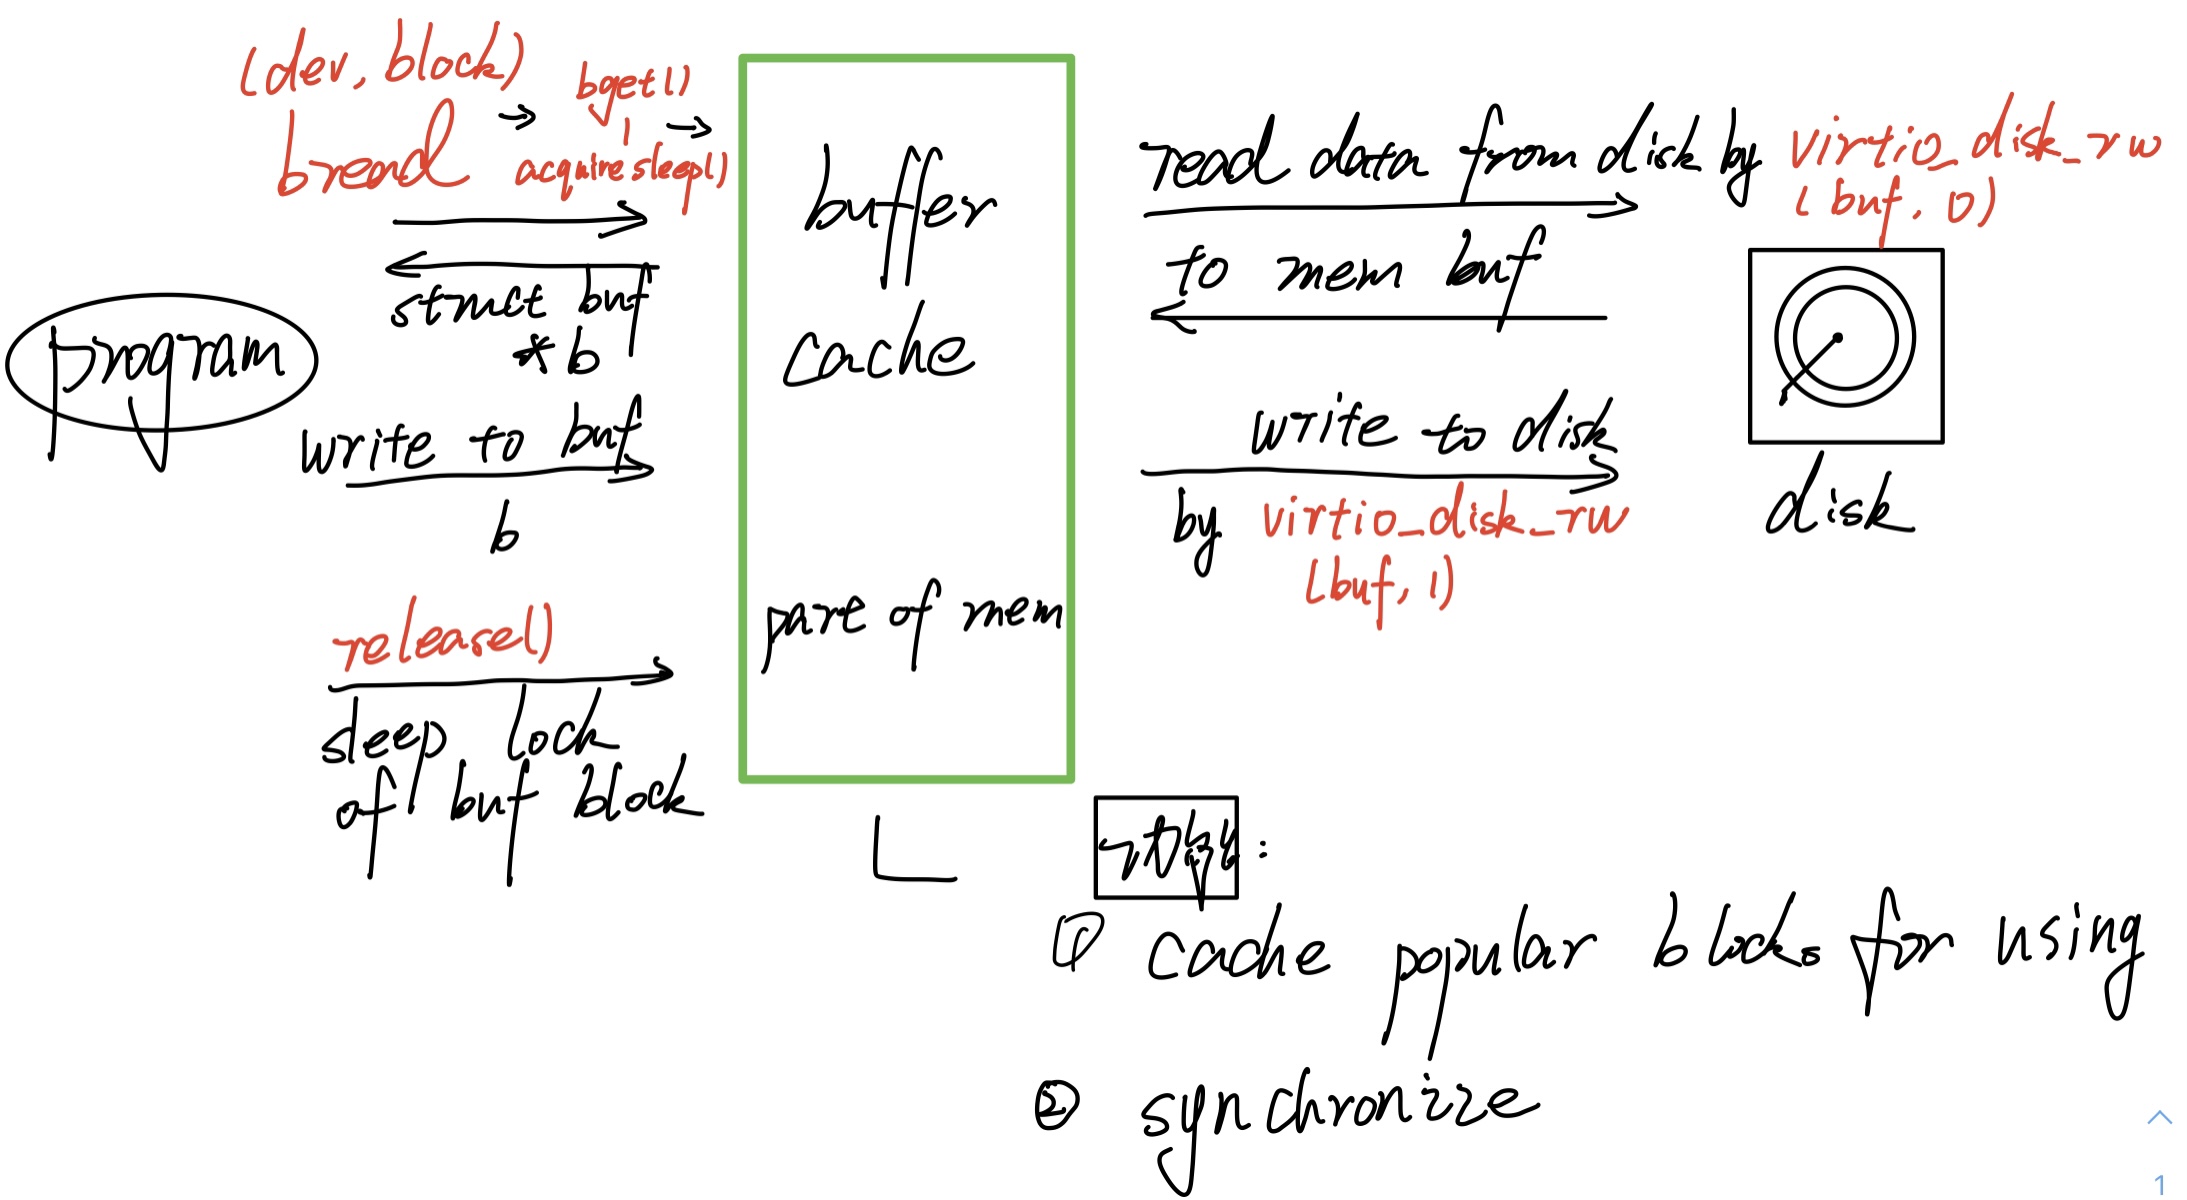 (dev, block)
bread → bget() →
acquiresleep()
struct buf
*b
program
write to buf
b
release()
sleep lock
of buf block
buffer
cache
part of mem
read data from disk by virtio_disk_rw
(buf, 0)
to mem buf
write to disk
by virtio_disk_rw
(buf, 1)
disk
功能:
① cache popular blocks for using
② synchronize
1